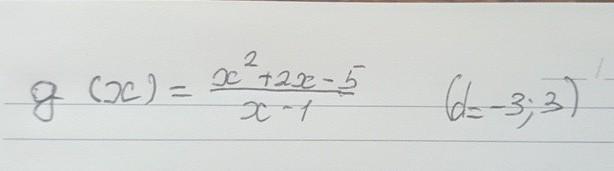 g (x) = (x² + 2x - 5)/(x - 1) (d = -3; 3)